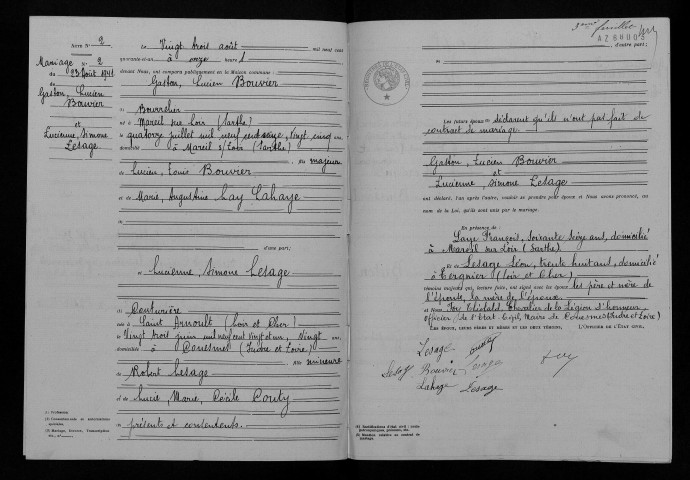 Acte N° 2
Mariage N° 2
du 23 Août 1941
de
Gaston, Lucien
Bouvier
et
Lucienne, Simone
Lesage
Le Vingt trois août mil neuf cent
quarante-et-un à onze heures
devant Nous, ont comparu publiquement en la Maison commune :
Gaston, Lucien Bouvier
Bourrelier
né à Mareil sur Loir (Sarthe)
le quatorze juillet mil neuf cent seize, Vingt cinq ans,
domicilié à Mareil s/Loir (Sarthe)
fils majeur
de Lucien, Louis Bouvier
et de Marie, Augustine Lahaye
d'une part;
et Lucienne Simone Lesage
(1) Couturière
née à Saint Arnoult (Loir et Cher)
le Vingt trois juin mil neuf cent vingt et un, Vingt ans,
domiciliée à Couesmes (Indre et Loire)
fille mineure
de Robert Lesage
et de Lucie, Marie, Cécile Pouty
présents et consentants.
(1) Profession
3ème feuillet
d'autre part;
Les futurs époux déclarent qu'ils n'ont pas fait de
contract de mariage.
Gaston, Lucien Bouvier
et
Lucienne, Simone Lesage
ont déclaré, l'un après l'autre, vouloir se prendre pour époux et Nous avons prononcé, au
nom de la Loi, qu'ils sont unis par le mariage.
En présence de
François, soixante seize ans, domicilié
à Mareil sur Loir (Sarthe)
et de Lesage Léon, trente huit ans, domicilié
à (Loir et Cher)
témoins majeurs qui, lecture faite, ont signé avec les époux les père et mère de
l'épouse, la mère de l'époux
et Nous Chevalier de la Légion d'honneur
officier de l'Etat Civil, Maire de Couesmes (Indre et Loire)
L'Officier de l'état civil
Lesage
Lesage Bouvier Lesage
Lahaye Lesage